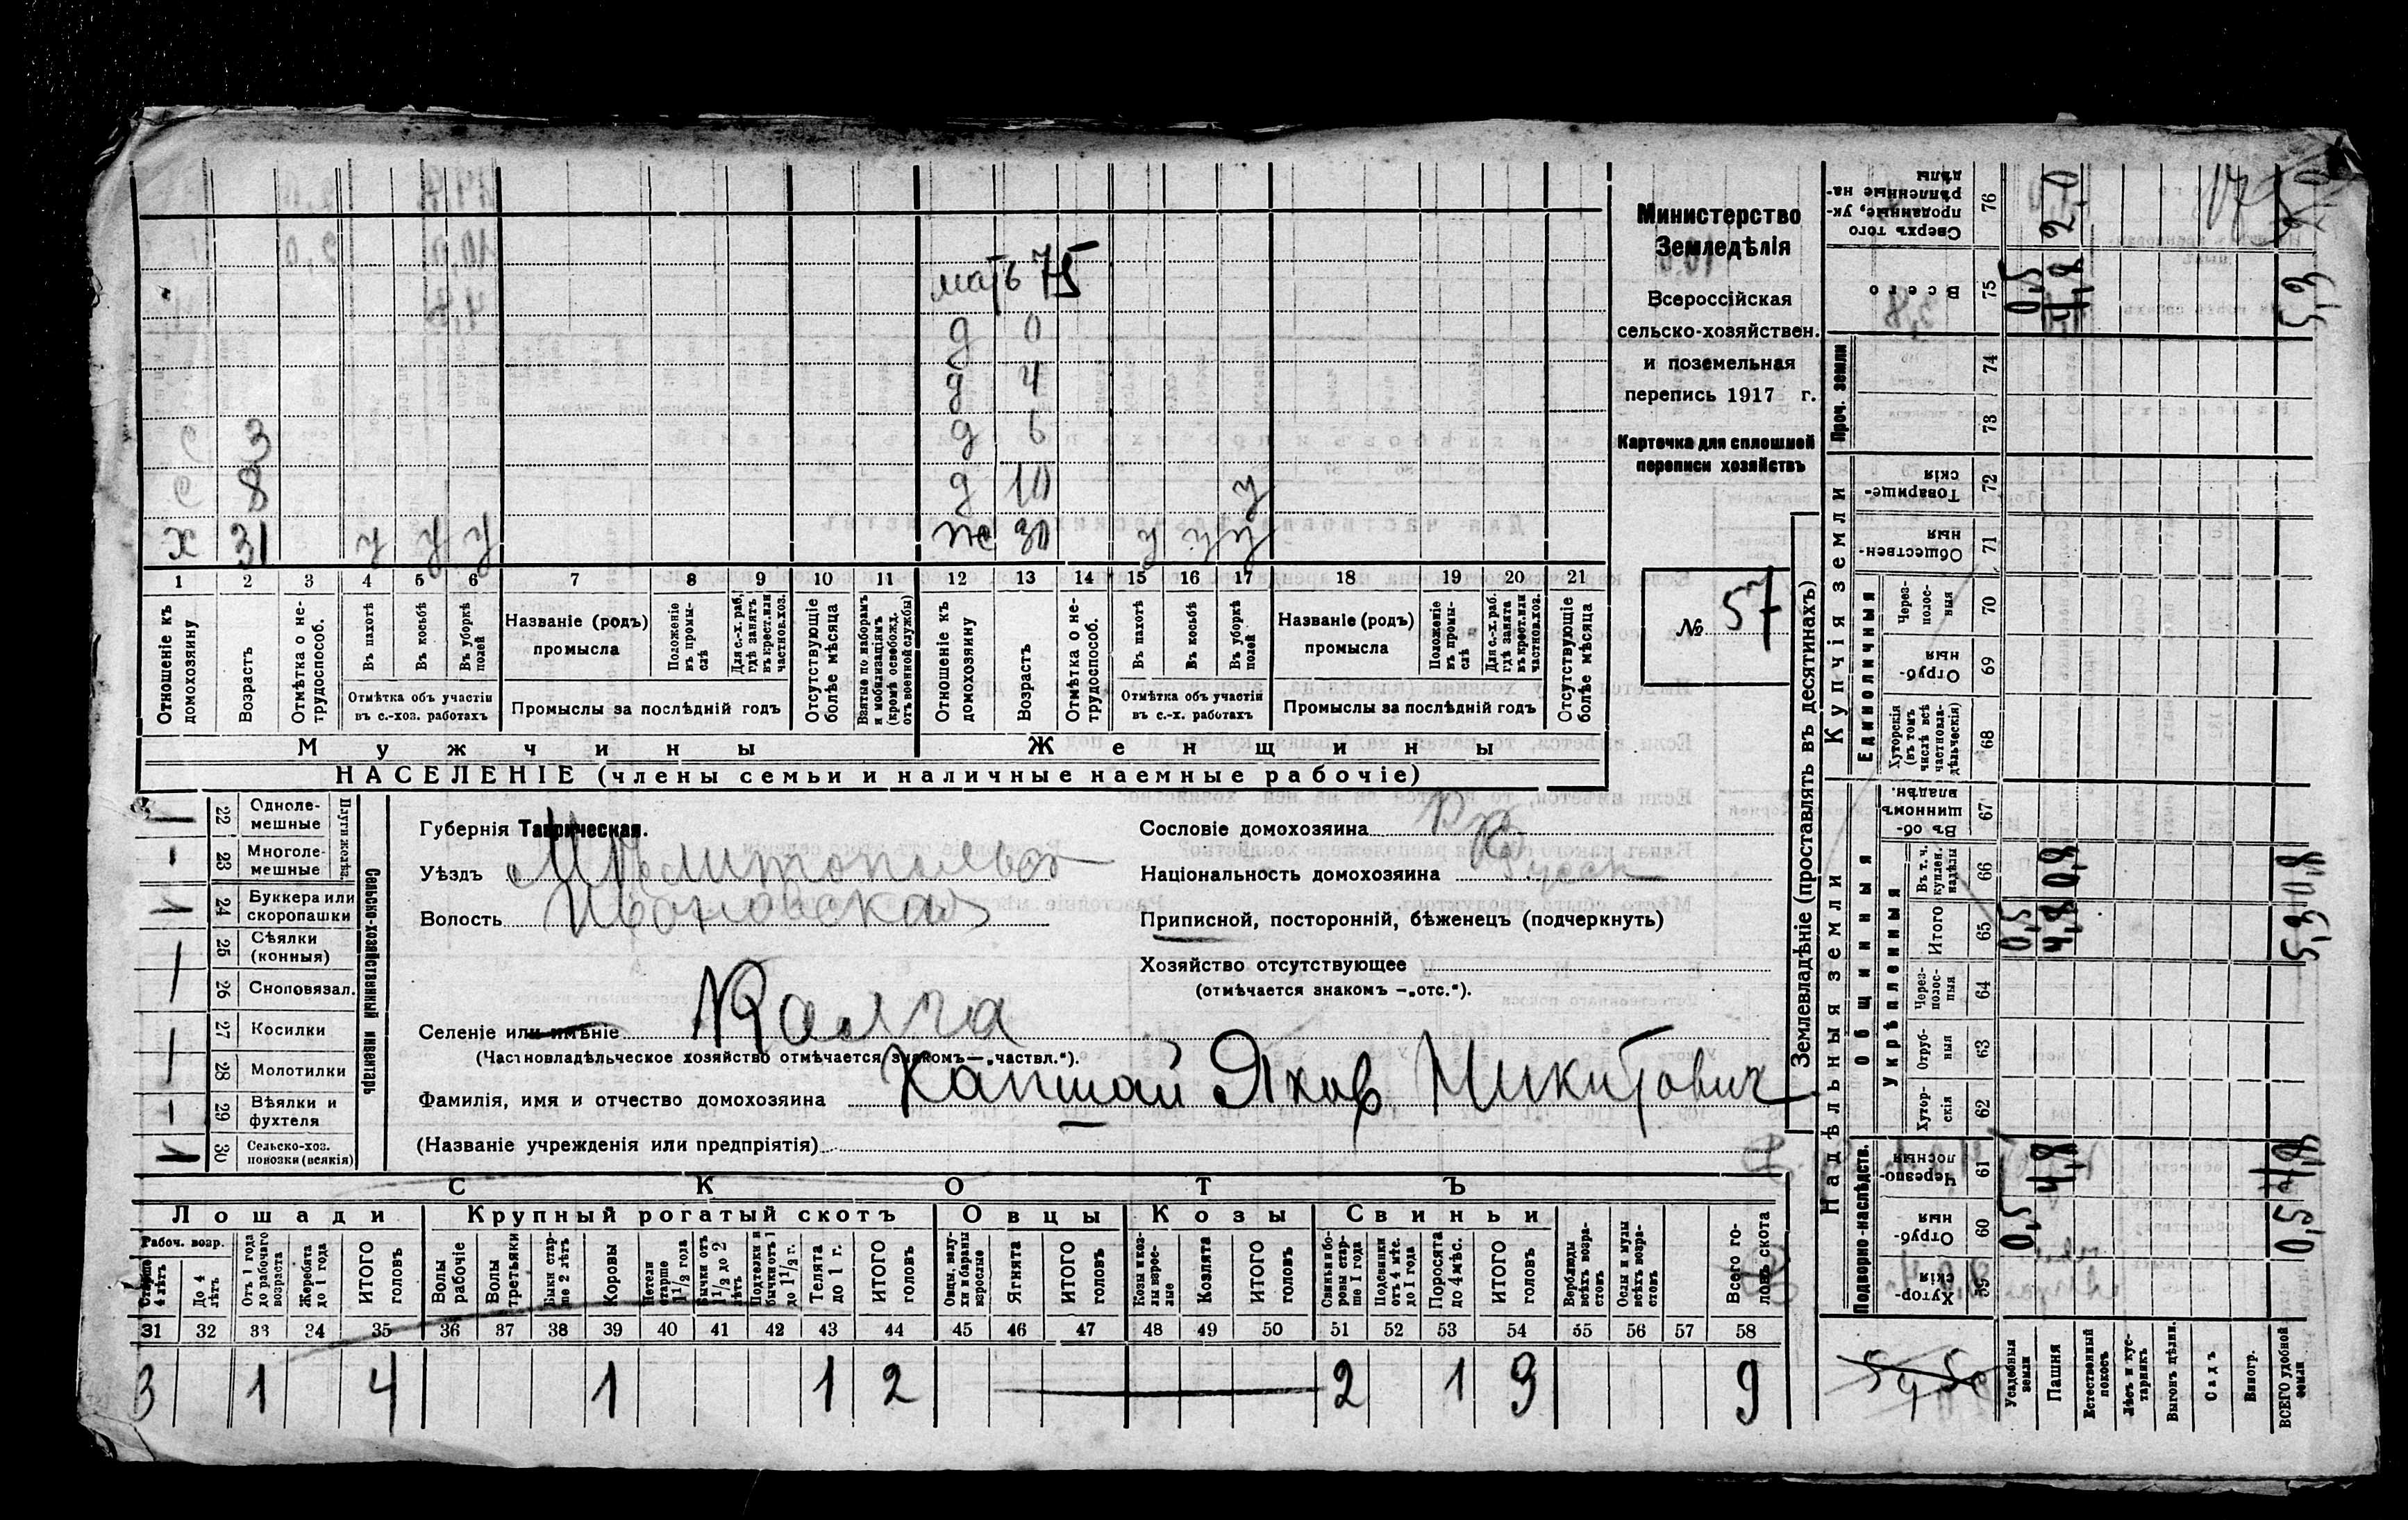 мать 75
д 0
д 4
с 3 д 6
с 8 д 10 у
х 31 у у у ж 30 у у у
1 2 3 4 5 6 7 8 9 10 11 12 13 14 15 16 17 18 19 20 21
Отношеніе къ домохозяину
Возрастъ
Отмѣтка о не-
трудоспособ.
Въ пахотѣ
Въ косьбѣ
Въ уборкѣ полей
Отмѣтка объ участіи
въ с.-хоз. работахъ
Названіе (родъ)
промысла
Положеніе въ промы-
слѣ
Для с.-х. раб., гдѣ занятъ въ крест. или частнов. хоз.
Промыслы за послѣдній годъ
Отсутствующіе болѣе мѣсяца
Взятые по наборамъ и мобилизаціямъ (кромѣ освобожд. отъ военной службы)
Отношеніе къ домохозяину
Возрастъ
Отмѣтка о не-
трудоспособ.
Въ пахотѣ
Въ косьбѣ
Въ уборкѣ полей
Отмѣтка объ участіи
въ с.-х. работахъ
Названіе (родъ)
промысла
Положеніе въ промы-
слѣ
Для с.-х. раб. гдѣ занята въ крест. или частнов. хоз.
Промыслы за послѣдній годъ
Отсутствующіе болѣе мѣсяца
Мужчины Женщины
НАСЕЛЕНІЕ (члены семьи и наличные наемные рабочіе)
Министерство
Земледѣлія
Всероссійская
сельско-хозяйствен.
и поземельная
перепись 1917 г.
Карточка для сплошной
переписи хозяйствъ
№ 57
Сельско-хозяйственный инвентарь
Плуги желѣз.
22 Одноле-
мешные
23 Многоле-
мешные
24 Буккера или
скоропашки
25 Сѣялки
(конныя)
26 Сноповязал.
27 Косилки
28 Молотилки
29 Вѣялки и
фухтеля
30 Сельско-хоз.
повозки (всякія)
Губернія Таврическая.
Уѣздъ Мелитопольск
Волость Ивановская
Селеніе или имѣніе Калга
(Частновладѣльческое хозяйство отмѣчается знакомъ—„частвл.“).
Фамилія, имя и отчество домохозяина Капшай Яков Микитович
(Названіе учрежденія или предпріятія)
Сословіе домохозяина Кр
Національность домохозяина Русск
Приписной, посторонній, бѣженецъ (подчеркнуть)
Хозяйство отсутствующее
(отмѣчается знакомъ —„отс.“).
СКОТЪ
Лошади Крупный рогатый скотъ Овцы Козы Свиньи
Рабоч. возр.
Старше 4 лѣтъ
До 4 лѣтъ
Отъ 1 года до рабочаго возраста
Жеребята до 1 года
ИТОГО головъ
Волы рабочіе
Волы третьяки
Быки стар-
ше 2 лѣтъ
Коровы
Нетели старше 1½ года
Бычки отъ 1½ до 2 лѣтъ
Подтелки и бычки отъ 1 до 1½ г.
Телята до 1 г.
ИТОГО головъ
Овцы, валу-
хи и бараны взрослые
Ягнята
ИТОГО головъ
Козы и коз-
лы взрос-
лые
Козлята
ИТОГО головъ
Свиньи и бо-
ровы стар-
ше 1 года
Подсвинки отъ 4 мѣс. до 1 года
Поросята до 4 мѣс.
ИТОГО головъ
Верблюды всѣхъ возра-
стовъ
Ослы и мулы всѣхъ возра-
стовъ
Всего го-
ловъ скота
31 32 33 34 35 36 37 38 39 40 41 42 43 44 45 46 47 48 49 50 51 52 53 54 55 56 57 58
3 1 4 1 1 2 2 1 3 9
Землевладѣніе (проставлять въ десятинахъ)
Надѣльныя земли Купчія земли Проч. земли
Подворно-наслѣдств. Общинныя Единоличныя
Укрѣпленныя
Хутор-
скія 59
Отруб-
ныя 60 0,5 0,5
Черезпо-
лосныя 61 4,8 4,8
Хутор-
скія 62
Отруб-
ныя 63
Через-
полос-
ныя 64
Итого 65 0,5 4,8 5,3
Въ т. ч. куплен. надѣлы 66 0,8 0,8
Въ об-
щинномъ владѣн. 67
Хуторскія (въ томъ числѣ всѣ частновла-
дѣльческія) 68
Отруб-
ныя 69
Через-
полос-
ныя 70
Обществен-
ныя 71
Товарище-
скія 72
73
74
Всего 75 0,5 4,8 5,3
Сверхъ того проданные, ук-
рѣпленные на-
дѣлы 76 2,0 17 2,0
Усадебныя земли
Пашня
Естественный покосъ
Лѣсъ и кус-
тарникъ
Выгонъ, цѣлин.
Садъ
Виногр.
ВСЕГО удобной земли